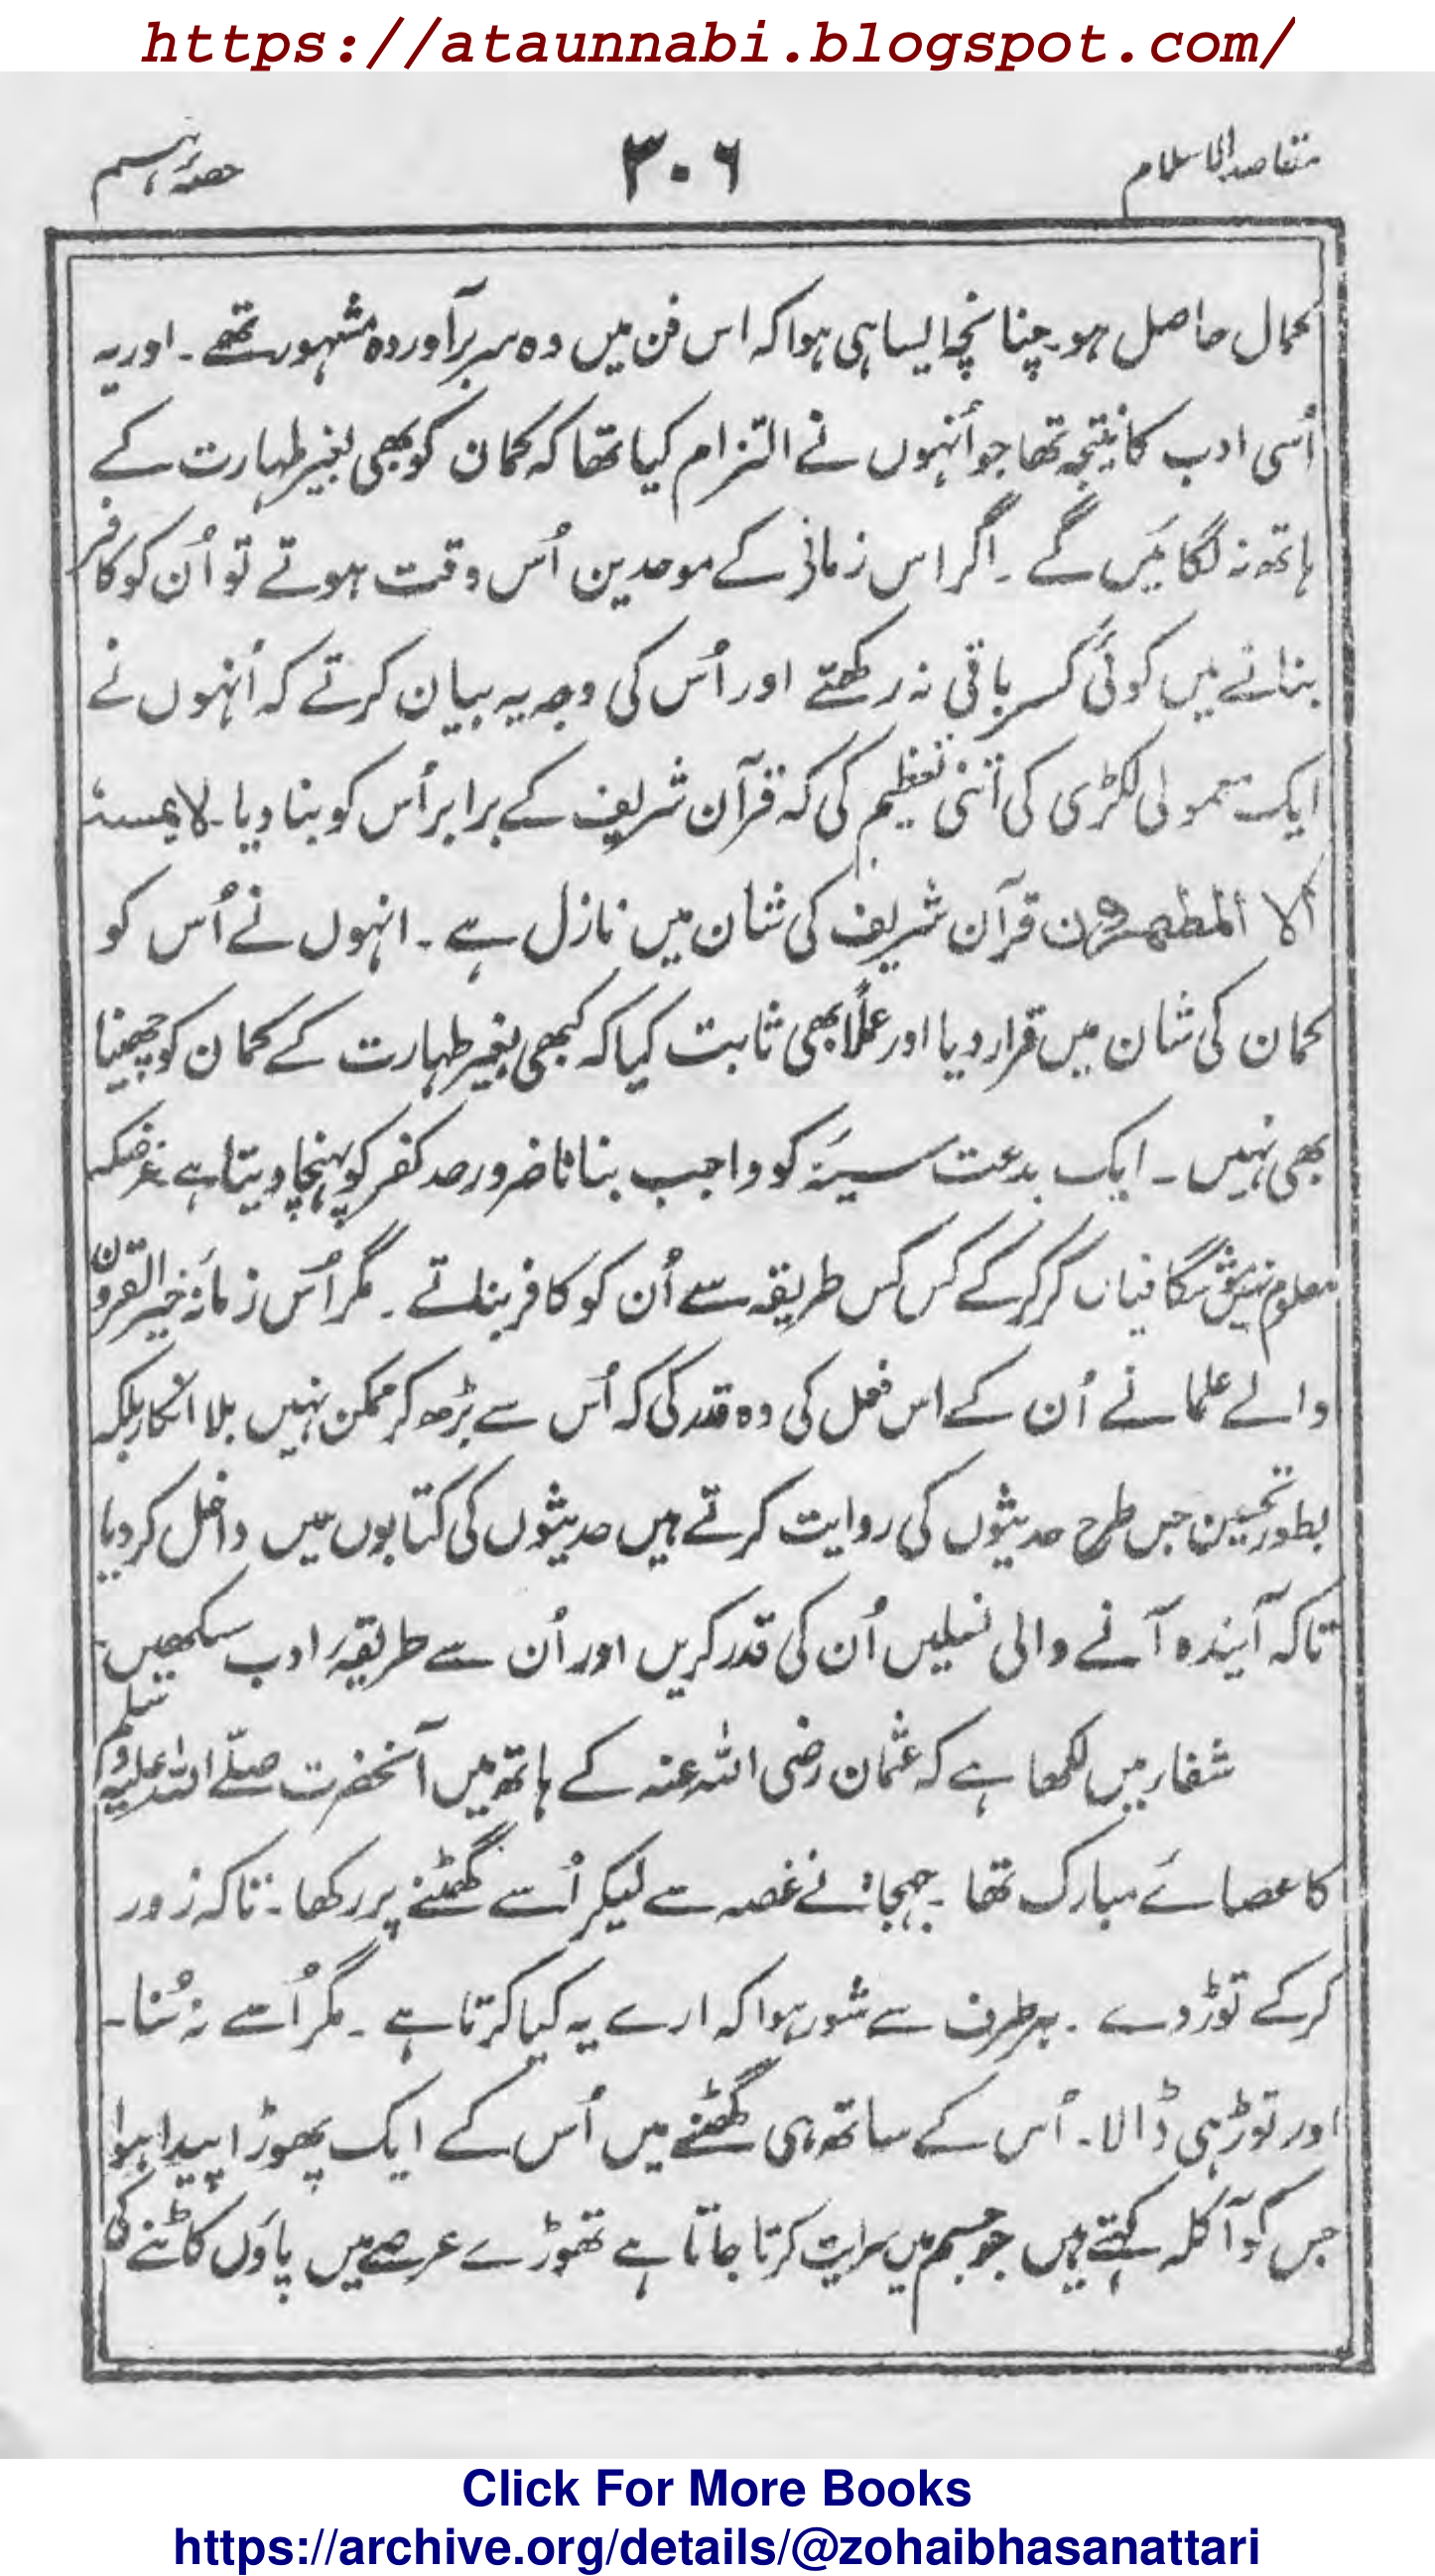 https://ataunnabi.blogspot.com/
مقاصد الاسلام ۳۰۶ حصہٴ نہم
کمال حاصل ہو۔ چنانچہ ایسا ہی ہوا کہ اس فن میں وہ سربرآوردہ مشہور تھے ۔ اور یہ
اُسی ادب کا نتیجہ تھا جو اُنہوں نے التزام کیا تھا کہ کمان کو بھی بغیر طہارت کے
ہاتھ نہ لگائیں گے ۔ اگر اس زمانے کے موحدین اُس وقت ہوتے تو اُن کو کافر
بنانے میں کوئی کسر باقی نہ رکھتے اور اُس کی وجہ یہ بیان کرتے کہ اُنہوں نے
ایک معمولی لکڑی کی اتنی تعظیم کی کہ قرآن شریف کے برابر اُس کو بنا دیا۔ لا یمسہ
الا المطھرون قرآن شریف کی شان میں نازل ہے ۔ انہوں نے اُس کو
کمان کی شان میں قرار دیا اور عملاً بھی ثابت کیا کہ کبھی بغیر طہارت کے کمان کو چھیا
بھی نہیں ۔ ایک بدعت سیئہ کو واجب بنانا ضرور حد کفر کو پہنچا دیتا ہے غرضکہ
معلوم نہیں شگافیاں کر کر کے کس کس طریقہ سے اُن کو کافر بناتے ۔ مگر اُس زمانۂ خیر القرون
والے علما نے اُن کے اس فعل کی وہ قدر کی کہ اُس سے بڑھ کر ممکن نہیں بلا انکار بلکہ
بطور تحسین جس طرح حدیثوں کی روایت کرتے ہیں حدیثوں کی کتابوں میں داخل کردیا
تاکہ آیندہ آنے والی نسلیں اُن کی قدر کریں اور اُن سے طریقۂ ادب سیکھیں
شفار میں لکھا ہے کہ عثمان رضی اللہ عنہ کے ہاتھ میں آنحضرت صلے اللہ علیہ وسلم
کا عصائے مبارک تھا ۔ جہجاہ نے غصہ سے لیکر اُسے گھٹنے پر رکھا ۔ تاکہ زور
کرکے توڑ دے ۔ ہر طرف سے شور ہوا کہ ارے یہ کیا کرتا ہے ۔ مگر اُسے نہ سُنا ۔
اور توڑ ہی ڈالا ۔ اُس کے ساتھ ہی گھٹنے میں اُس کے ایک پھوڑا پیدا ہوا
جس کو آکلہ کہتے ہیں جو جسم میں سرایت کرتا جاتا ہے تھوڑے عرصے میں پاؤں کاٹنے کی
Click For More Books
https://archive.org/details/@zohaibhasanattari